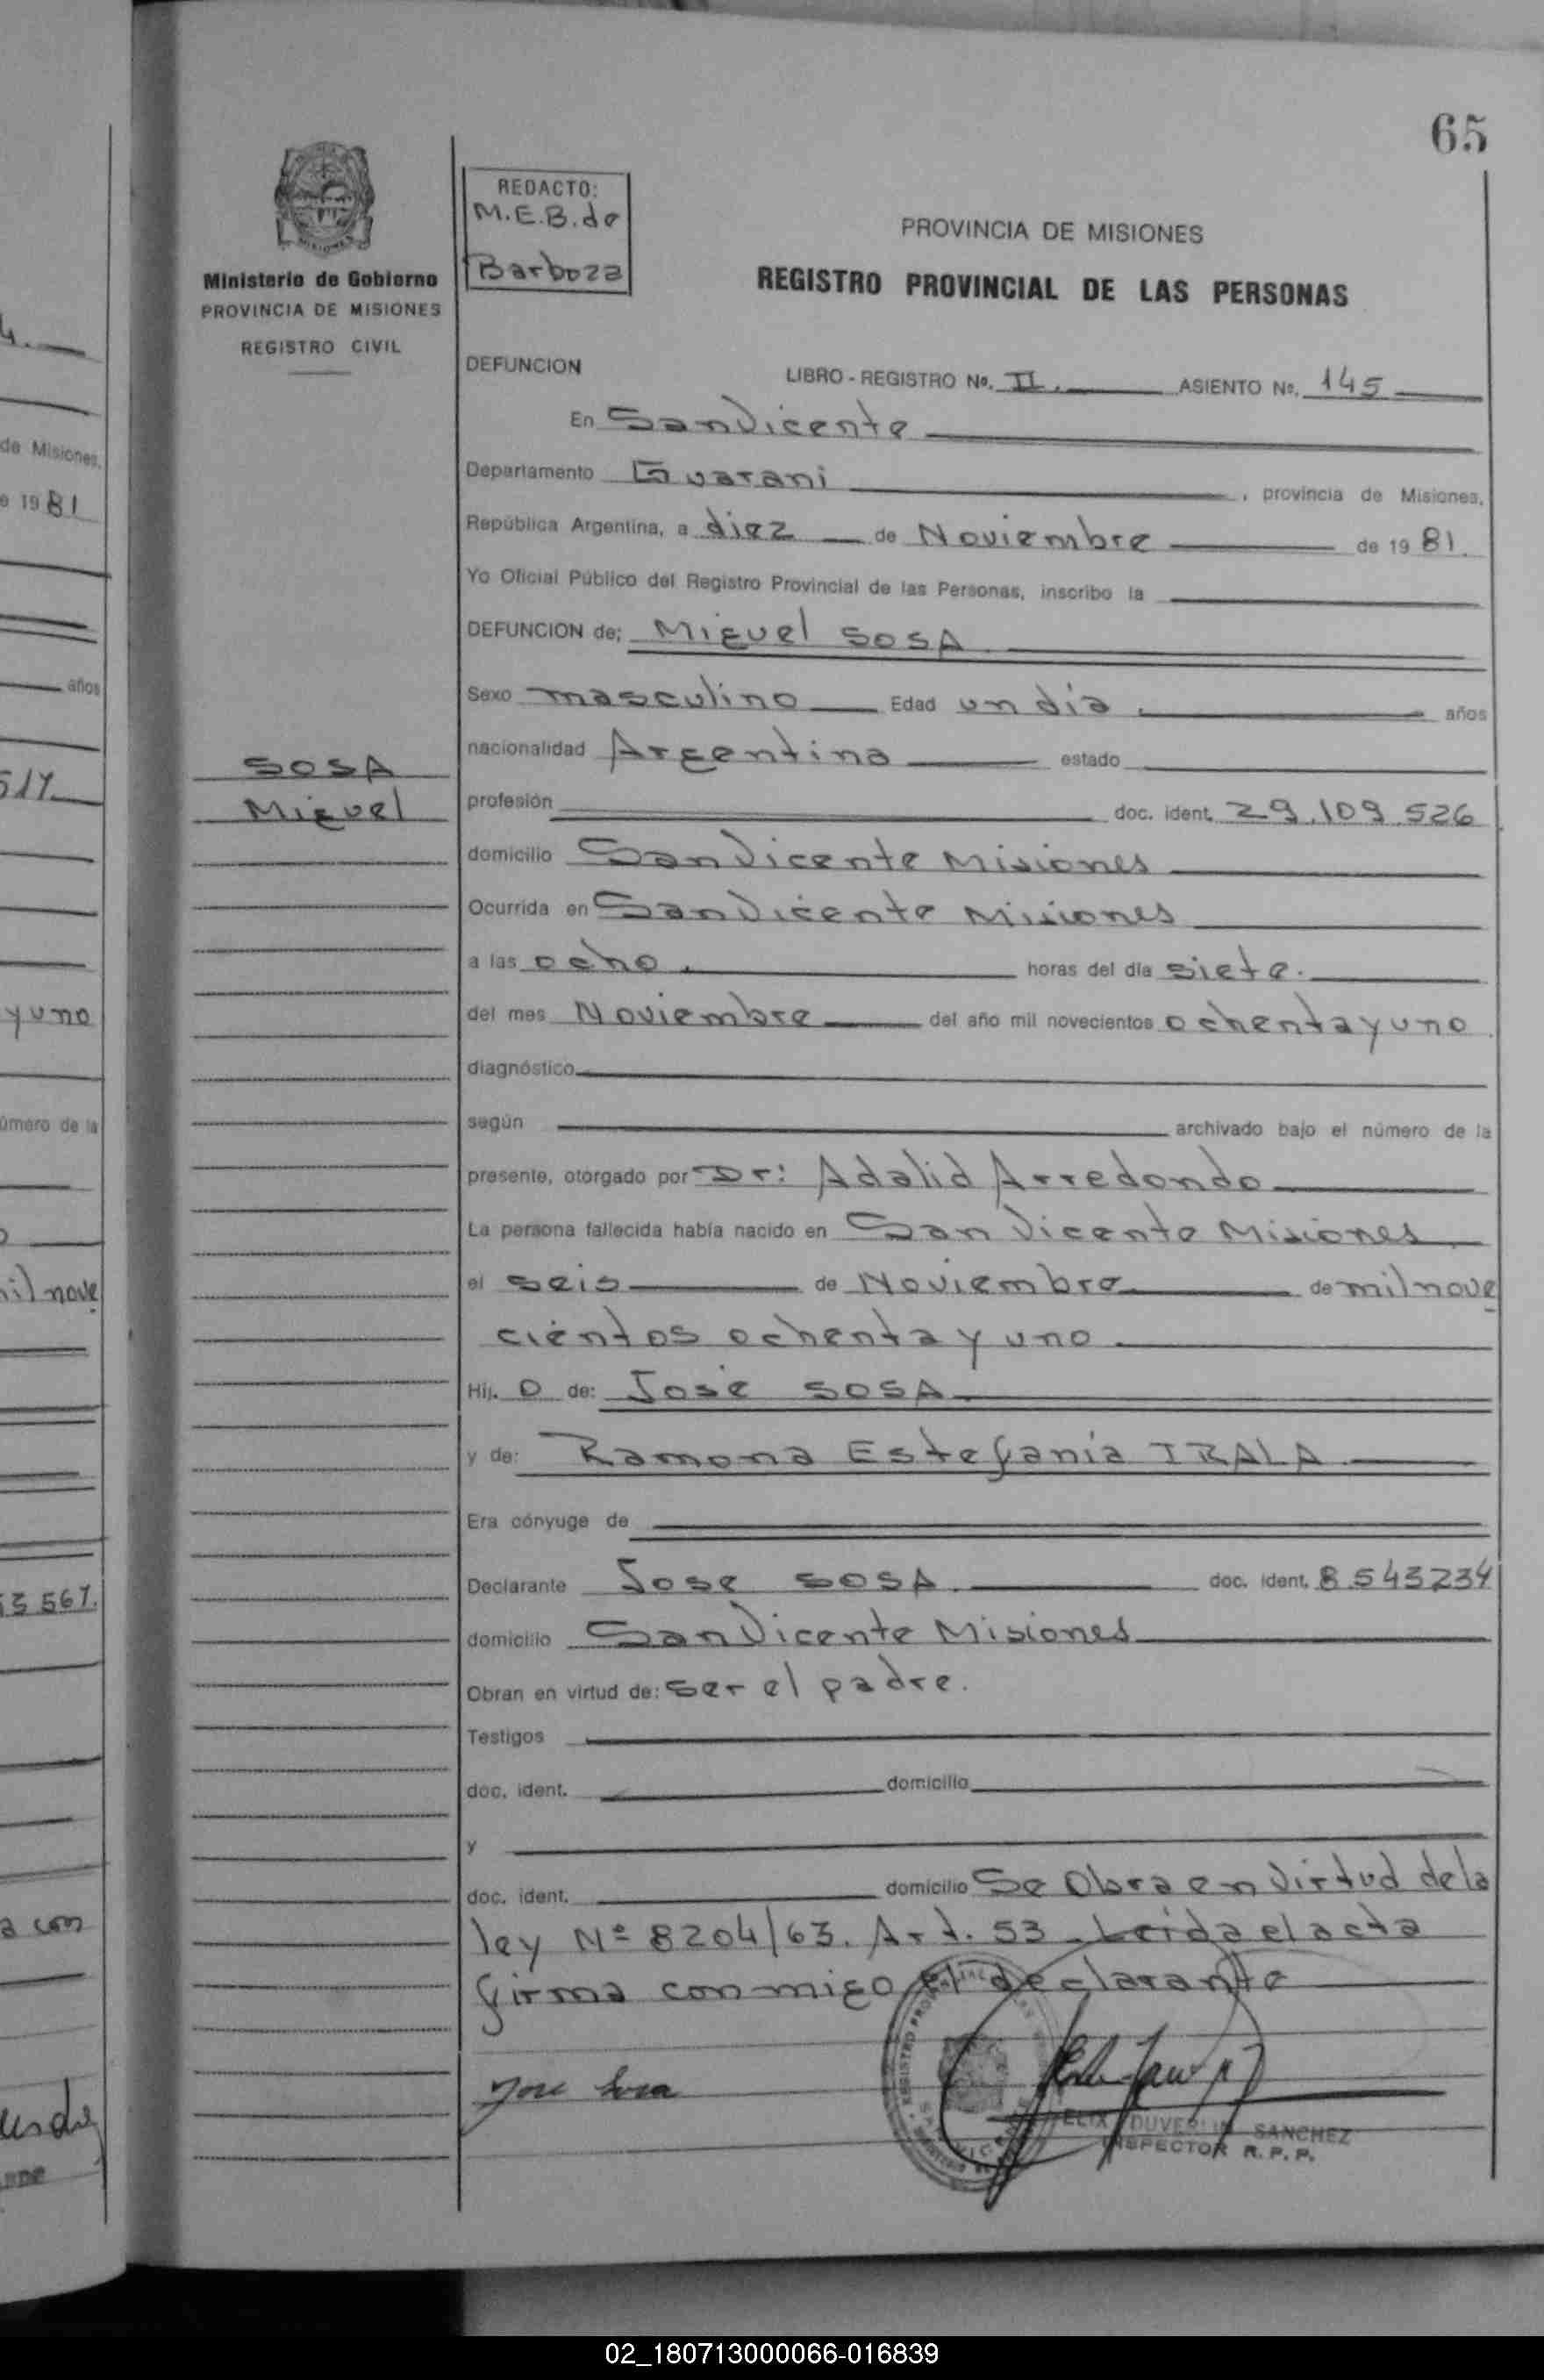 65
REDACTO:
M.E.B. de
Barboza
Ministerio de Gobierno
PROVINCIA DE MISIONES
REGISTRO CIVIL
PROVINCIA DE MISIONES
REGISTRO PROVINCIAL DE LAS PERSONAS
DEFUNCION
LIBRO - REGISTRO Nº. II. ASIENTO Nº. 145
En San Vicente
Departamento Guarani , provincia de Misiones,
República Argentina, a diez de Noviembre de 19 81.
Yo Oficial Público del Registro Provincial de las Personas, inscribo la
DEFUNCION de; Miguel SOSA
Sexo masculino Edad un dia. años
nacionalidad Argentina estado
SOSA
Miguel
profesión doc. ident. 29.109.526
domicilio San Vicente Misiones
Ocurrida en San Vicente Misiones
a las ocho. horas del día siete.
del mes Noviembre del año mil novecientos ochenta y uno
diagnóstico
según archivado bajo el número de la
presente, otorgado por Dr: Adalid Arredondo
La persona fallecida había nacido en San Vicente Misiones
el seis de Noviembre de mil nove
cientos ochenta y uno
Hij. o de: José SOSA
y de: Ramona Estefania IRALA
Era cónyuge de
Declarante Jose SOSA. doc. ident. 8543234
domicilio San Vicente Misiones
Obran en virtud de: ser el padre.
Testigos
doc. ident. domicilio
y
doc. ident. domicilio Se Obra en Virtud de la
ley Nº 8204/63. Art. 53. Leida el acta
firma conmigo el declarante
Jose Sosa
SANCHEZ
INSPECTOR R.P.P.
de Misiones,
e 19 81
años
517
y uno
úmero de la
il nove
3 567.
a con
02_180713000066-016839